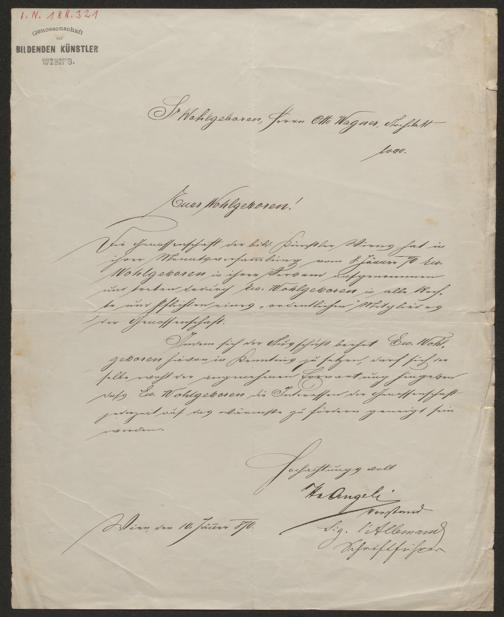 I. N. 188.321
Genossenschaft
der
BILDENDEN KÜNSTLER
WIEN'S.
Sr Wohlgeboren, Herrn Otto Wagner, Architekt
Euer Wohlgeboren!
Die Genossenschaft der bild. Künstler Wiens hat in
ihrer Monatsversammlung vom 8 Jänner
Wohlgeboren in ihren Verband aufgenommen
und Ew. Wohlgeboren in alle Rech-
te und Pflichten eines „ordentlichen“ Mitgliedes
der Genossenschaft.
Indem sich die Ew. Wohl-
geboren hievon in Kenntniss zu setzen,
selbe der angenehmen Erwartung hingeben
daß Ew. Wohlgeboren die Interessen der Genossenschaft
auf das wärmste zu fördern geneigt sein
werden.
Hochachtungsvoll
Angeli
Vorstand
Sig. l'Allemand
Schriftführer
Wien den 10. Jänner